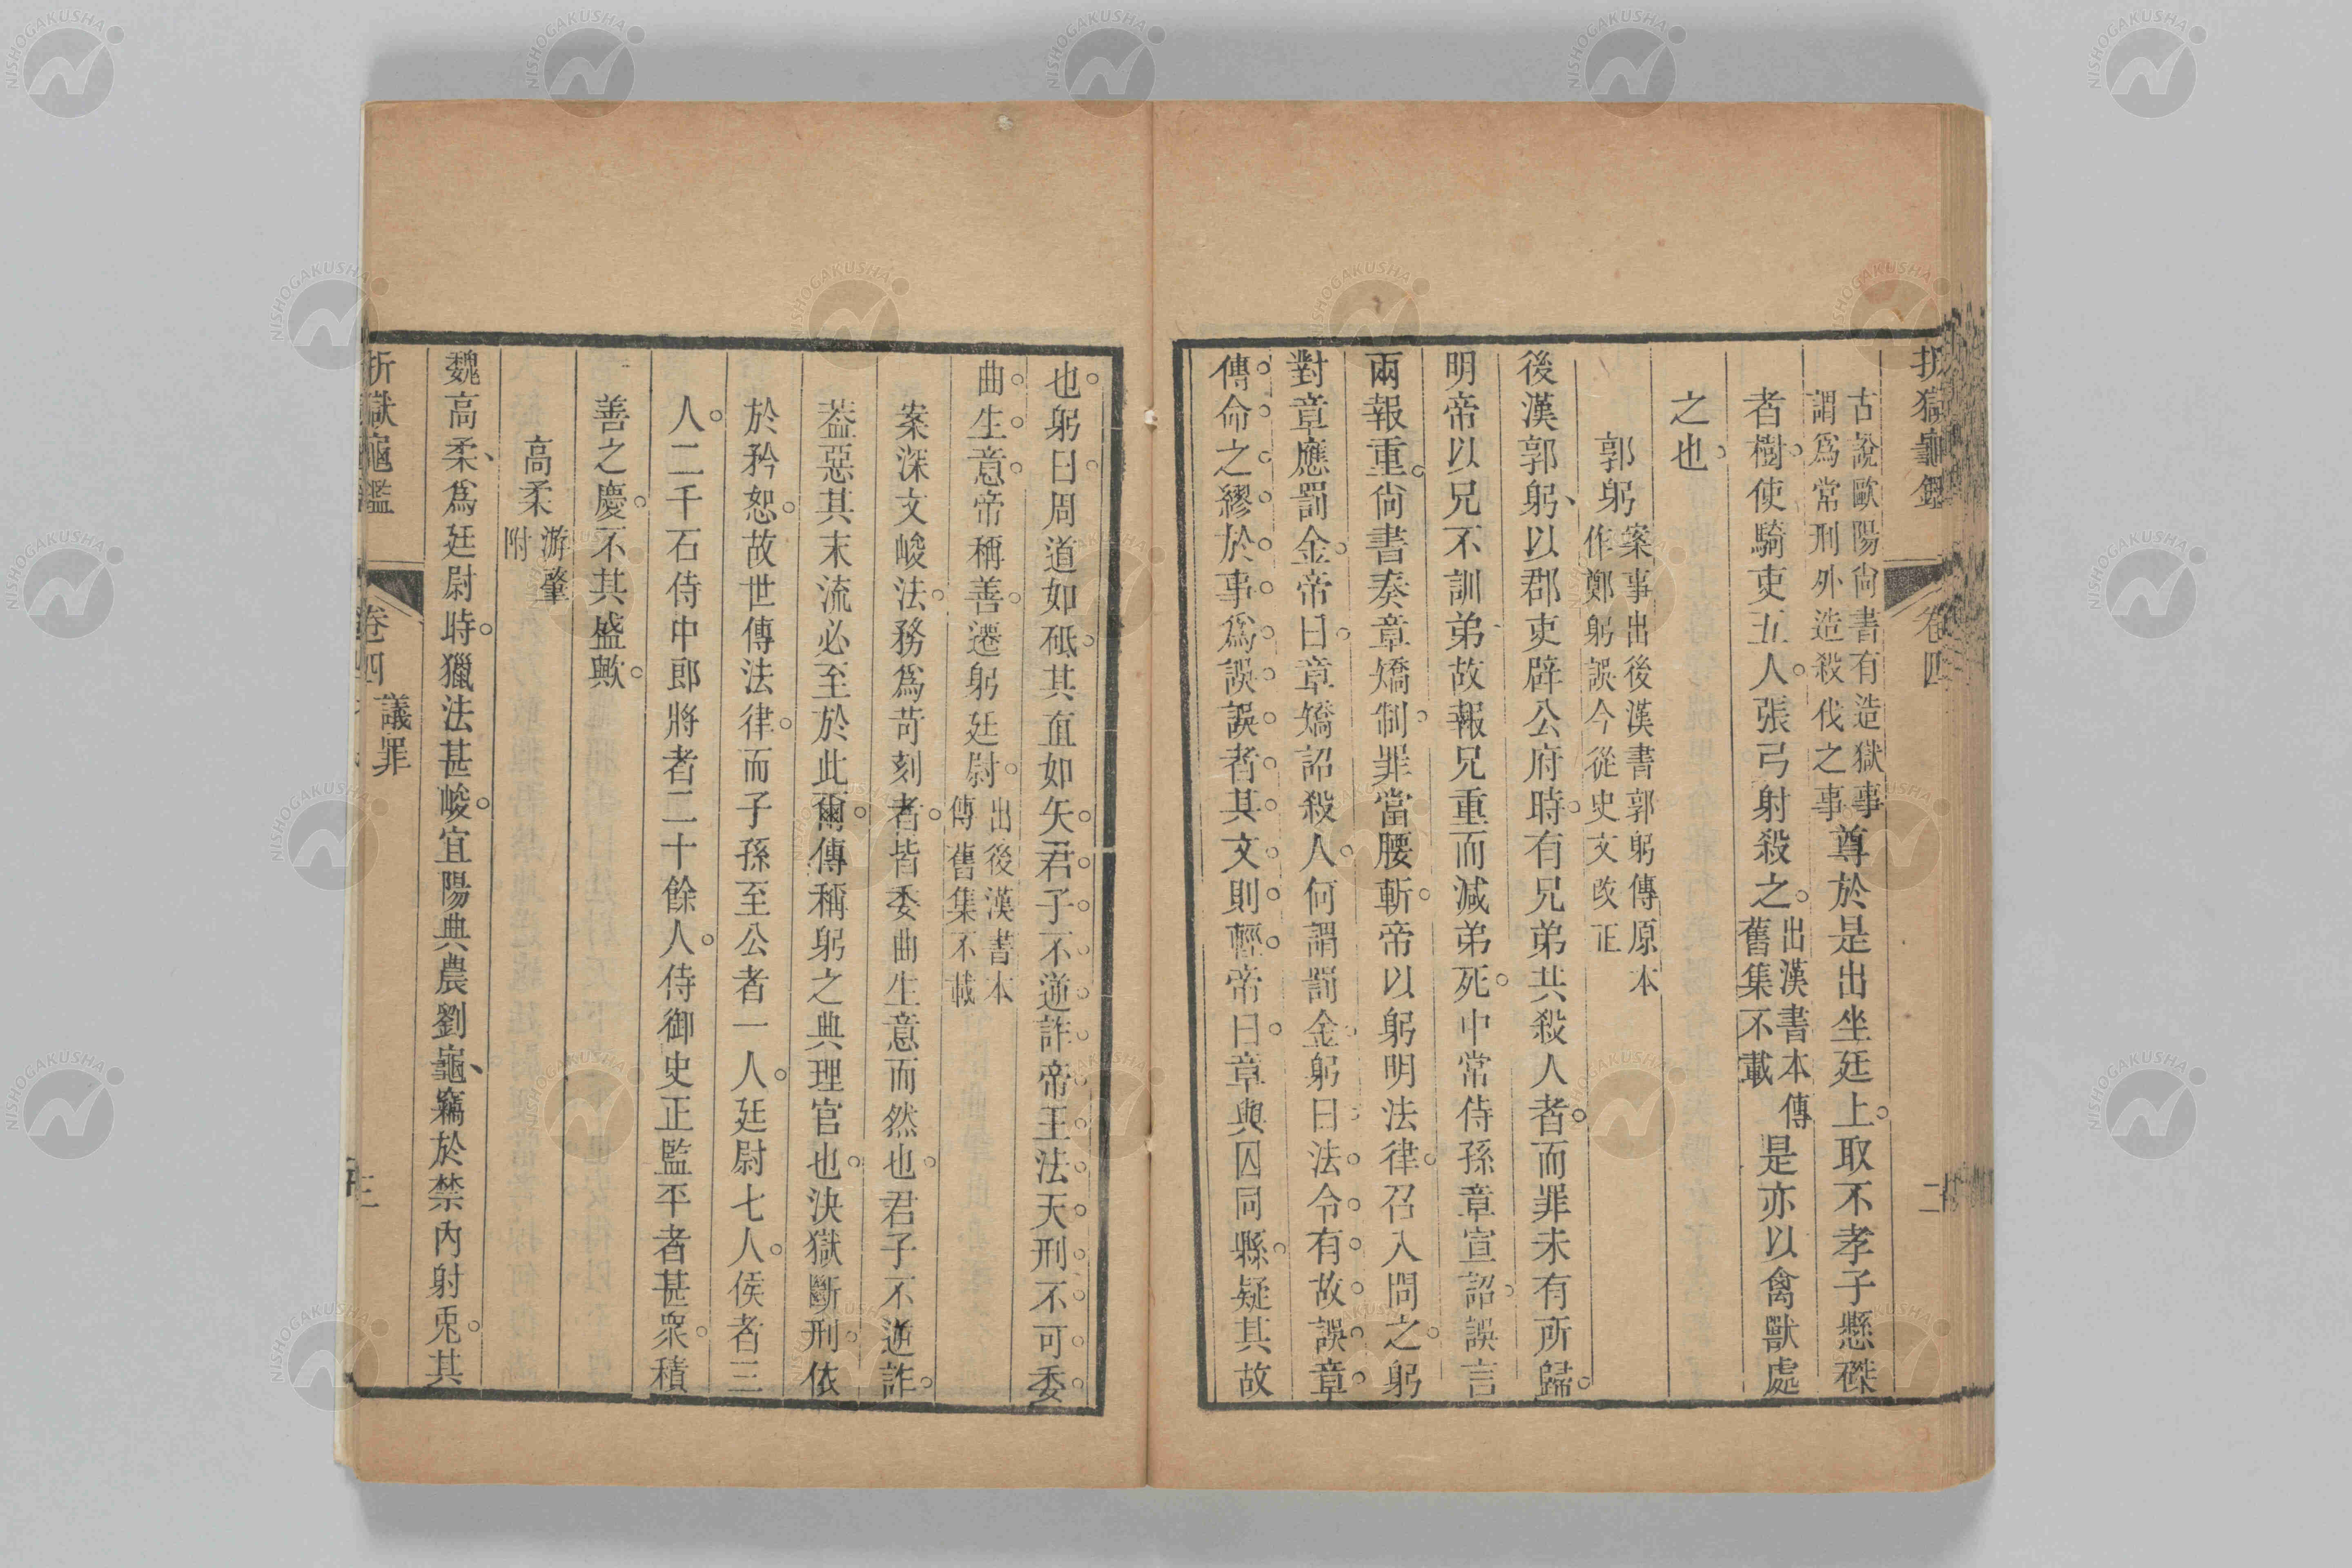 折獄龜鑑 卷四 二
古說歐陽尙書有造獄事
謂爲常刑外造殺伐之事
尊於是出坐廷上。取不孝子懸磔
者樹。使騎吏五人。張弓射殺之。
出漢書本傳
舊集不載
是亦以禽獸處
之也。
郭躬
案事出後漢書郭躬傳原本
作鄭躬誤今從史文改正
後漢郭躬、以郡吏辟公府時。有兄弟共殺人者。而罪未有所歸。
明帝以兄不訓弟、故報兄重而減弟死。中常侍孫章宣詔。誤言
兩報重。尙書奏章矯制。罪當腰斬。帝以躬明法律。召入問之。躬
對章應罰金。帝曰。章矯詔殺人。何謂罰金。躬曰。法。令。有。故。誤。章。
傳。命。之。繆。於。事。爲。誤。誤。者。其。文。則。輕。帝曰。章與囚同縣。疑其故
也。躬曰。周道如砥。其直如矢。君。子。不。逆。詐。帝。王。法。天。刑。不。可。委。
曲。生。意。帝稱善。遷躬廷尉。
出後漢書本
傳舊集不載
案深文峻法。務爲苛刻者。皆委曲生意而然也。君子不逆詐。
葢惡其末流必至於此爾。傳稱躬之典理官也。決獄斷刑。依
於矜恕。故世傳法律。而子孫至公者一人。廷尉七人。侯者三
人。二千石侍中郎將者二十餘人。侍御史正監平者甚衆。積
善之慶。不其盛歟。
高柔
游肇
附
魏高柔、爲廷尉時。獵法甚峻。宜陽典農劉龜、竊於禁內射兎。其
折獄龜鑑 卷四 議罪 三